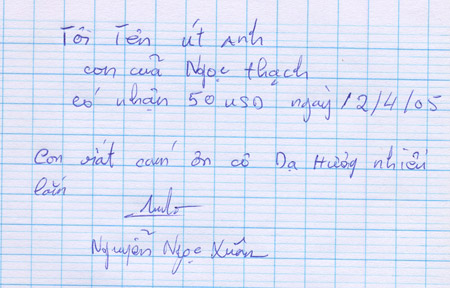 Tôi Tên Út Anh
con cuả Ngọc thạch
có nhận 50 USD ngày 12/4/05
Con rất cám ơn cô Dạ Hường nhiều
lắm
Nguyễn Ngọc Xuân